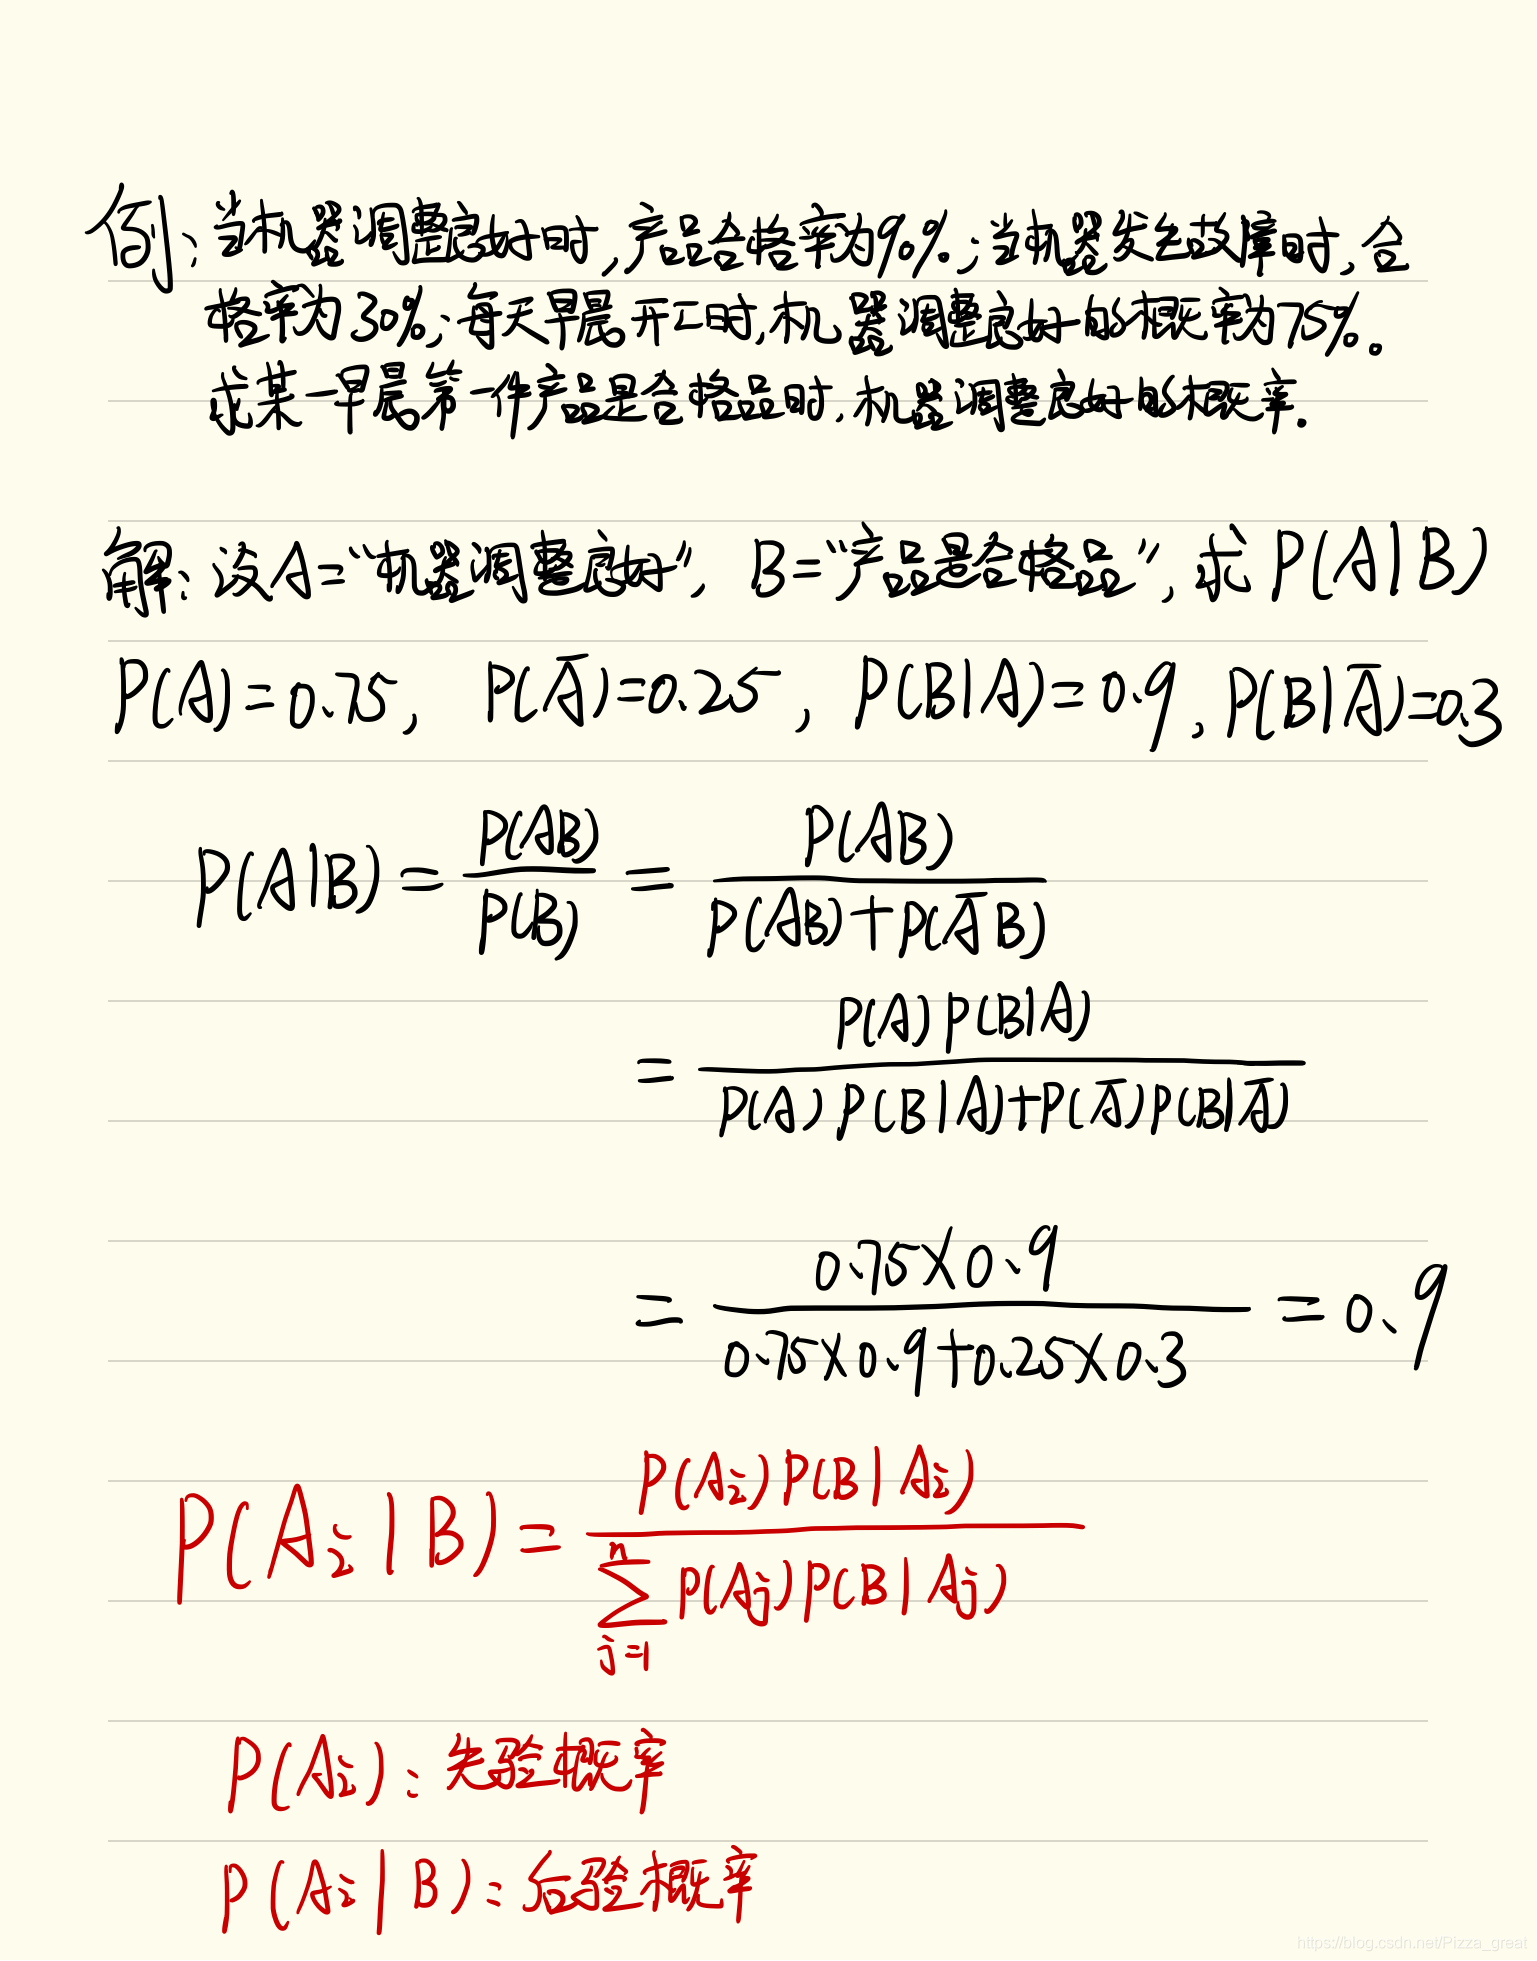 例:当机器调整良好时,产品合格率为90%;当机器发生故障时,合
格率为30%;每天早晨开工时,机器调整良好的概率为75%。
求某一早晨第一件产品是合格品时,机器调整良好的概率.
解:设A=“机器调整良好”, B=“产品是合格品”,求P(A|B)
P(A)=0.75, P(Ā)=0.25, P(B|A)=0.9, P(B|Ā)=0.3
P(A|B) = P(AB)/P(B) = P(AB)/(P(AB)+P(ĀB))
= P(A)P(B|A)/(P(A)P(B|A)+P(Ā)P(B|Ā))
= 0.75×0.9/(0.75×0.9+0.25×0.3) = 0.9
P(A_i|B) = P(A_i)P(B|A_i)/∑_{j=1}^{n} P(A_j)P(B|A_j)
P(A_i): 先验概率
P(A_i|B): 后验概率
https://blog.csdn.net/Pizza_great